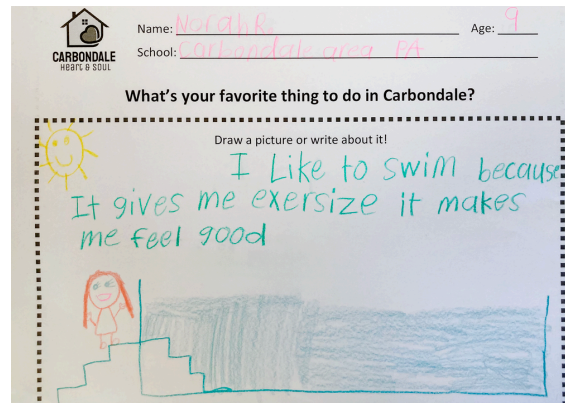 CARBONDALE
HEART & SOUL
Name: Norah R.
Age: 9
School: Carbondale area PA
What's your favorite thing to do in Carbondale?
Draw a picture or write about it!
I Like to swim because
It gives me exersize it makes
me feel good